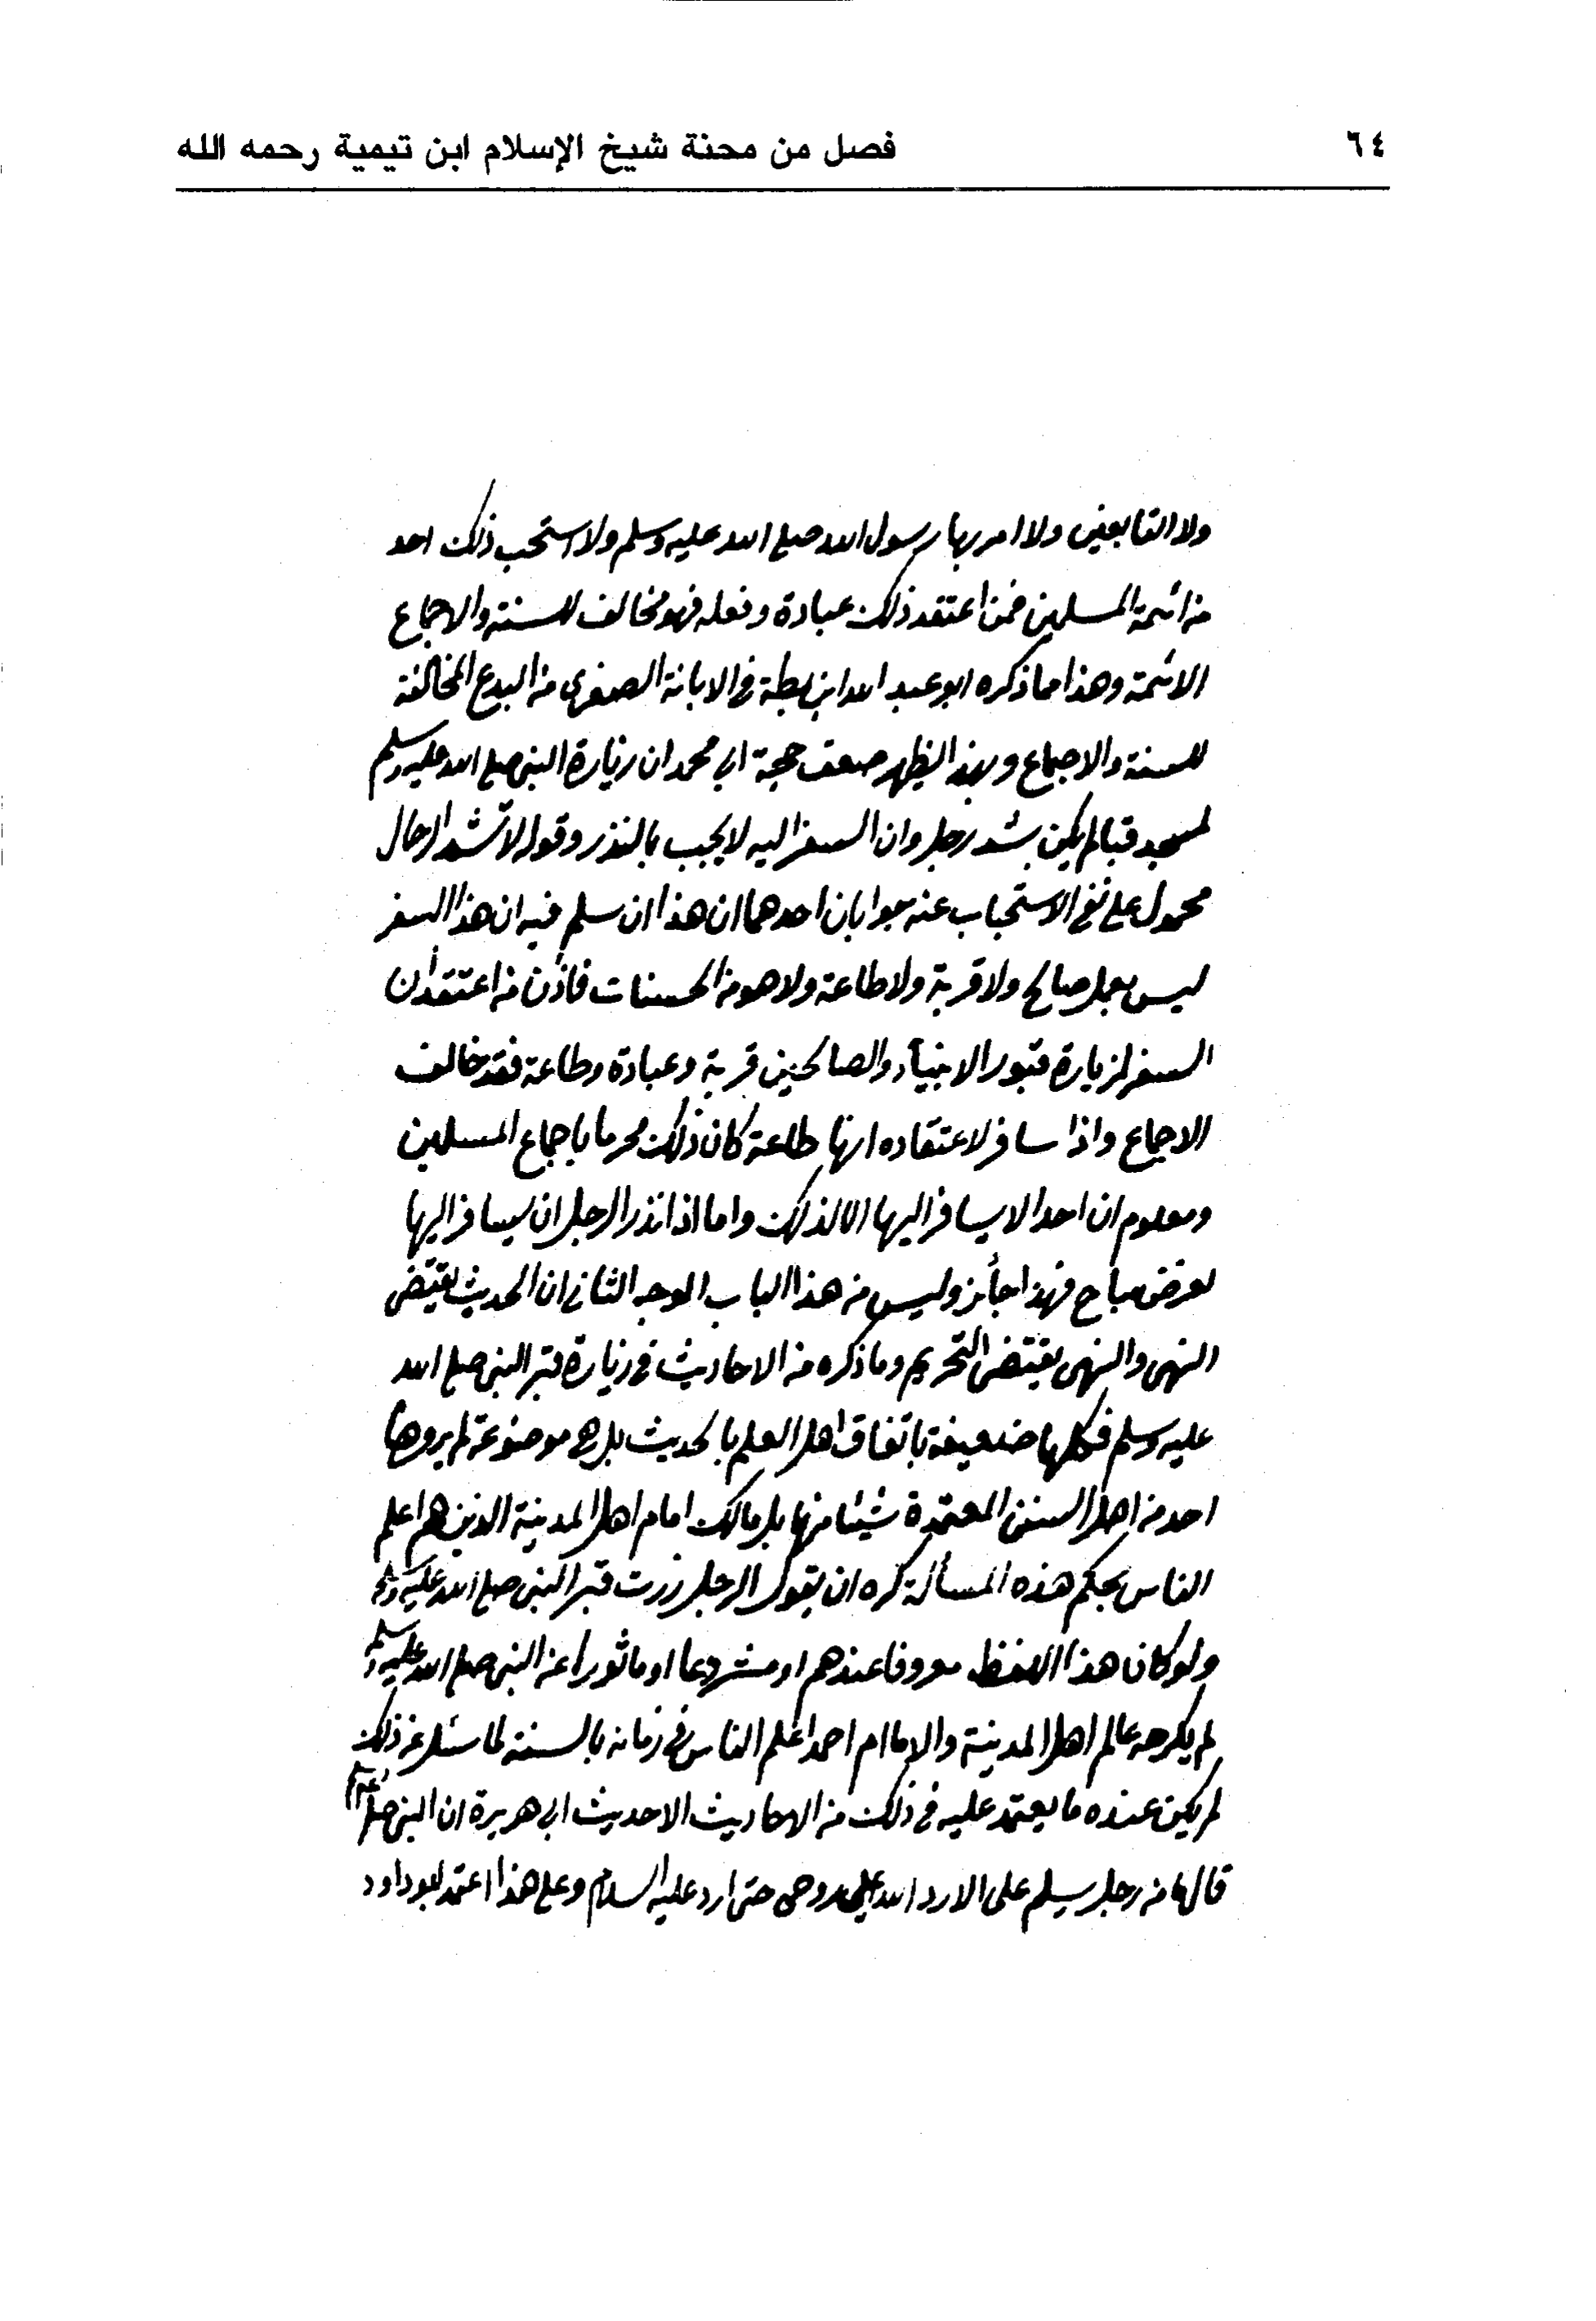 ٦٤ فصل من محنة شيخ الإسلام ابن تيمية رحمه الله
ولا التابعين ولا امر بها رسول الله صلى الله عليه وسلم ولا استحب ذلك احد
من ائمة المسلمين فمن اعتقد ذلك عبادة وفعله فهو مخالف للسنة والاجماع
الائمة وهذا مما ذكره ابو عبد الله ابن بطة في الابانة الصغرى من البدع المخالفة
للسنة والاجماع وبهذا يظهر ضعف حجة ابي محمد ان زيارة النبي صلى الله عليه وسلم
لمسجد قبا لم يكن بشد رحل وان السفر اليه لا يجب بالنذر وقوله لا تشد الرحال
محمول على نفي الاستحباب عنه جوابان احدهما ان هذا ان سلم فيه ان هذا السفر
ليس بعمل صالح ولا قربة ولا طاعة ولا هو من الحسنات فاذن من اعتقد أن
السفر لزيارة قبور الانبيآء والصالحين قربة وعبادة وطاعة فقد خالف
الاجماع واذا سافر لاعتقاده انها طاعة كان ذلك محرما باجماع المسلمين
ومعلوم ان احدا لا يسافر اليها الا لذلك واما اذا نذر الرجل ان يسافر اليها
لغرض مباح فهذا جائز وليس من هذا الباب الوجه الثاني ان الحديث يقتضي
النهي والنهي يقتضي التحريم وما ذكره من الاحاديث في زيارة قبر النبي صلى الله
عليه وسلم فكلها ضعيفة باتفاق اهل العلم بالحديث بل هي موضوعة لم يروها
احد من اهل السنن المعتمدة شيئا منها بل مالك امام اهل المدينة الذين هم اعلم
الناس بحكم هذه المسألة كره ان يقول الرجل زرت قبر النبي صلى الله عليه وسلم
ولو كان هذا اللفظ معروفا عندهم او مشروعا او ماثورا عن النبي صلى الله عليه وسلم
لم يكرهه عالم اهل المدينة والاماام احمد اعلم الناس في زمانه بالسنة لما سئل عن ذلك
لم يكن عنده ما يعتمد عليه في ذلك من الاحاديث الا حديث ابي هريرة ان النبي صلى
قال ما من رجل يسلم علي الا رد الله علي روحي حتى ارد عليه السلام وعلى هذا اعتمد ابو داود